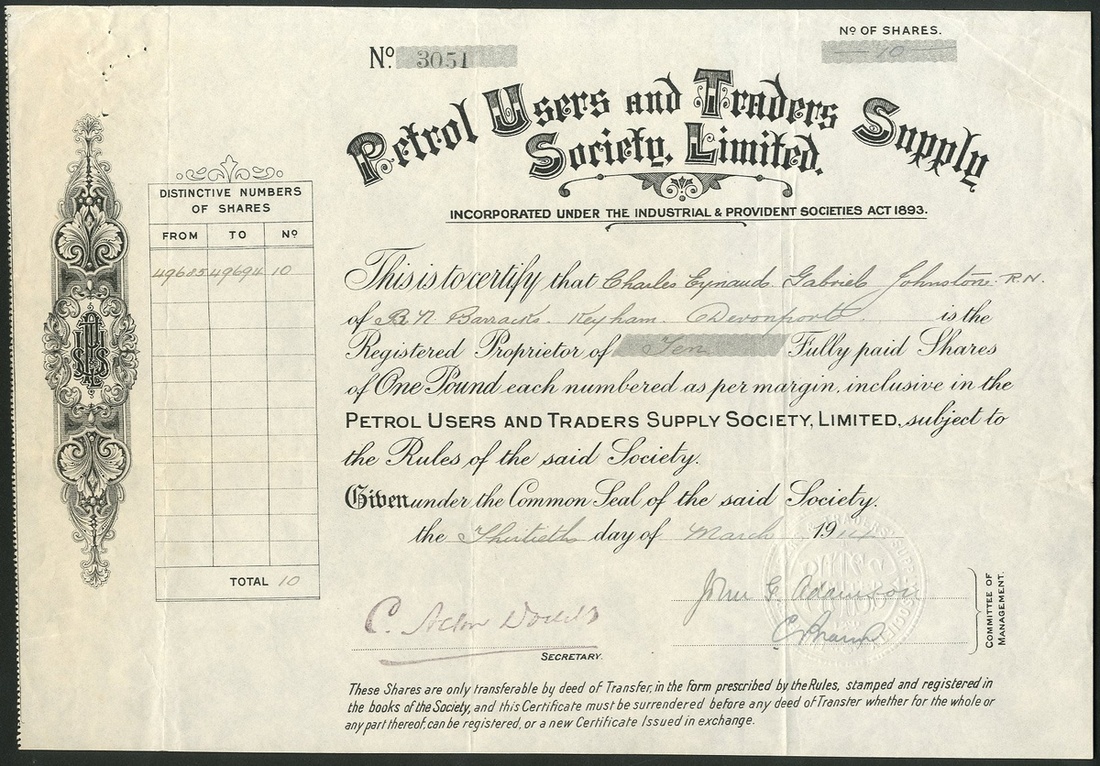 No. 3051
No OF SHARES.
10
Petrol Users and Traders Supply
Society, Limited.
INCORPORATED UNDER THE INDUSTRIAL & PROVIDENT SOCIETIES ACT 1893.
DISTINCTIVE NUMBERS
OF SHARES
FROM TO No
49685 49694 10
TOTAL 10
This is to certify that Charles Eynaud Gabriel Johnstone R.N.
of R N Barracks. Keyham. Devonport is the
Registered Proprietor of Ten Fully paid Shares
of One Pound each numbered as per margin, inclusive in the
PETROL USERS AND TRADERS SUPPLY SOCIETY, LIMITED, subject to
the Rules of the said Society.
Given under the Common Seal of the said Society.
the Thirtieth day of March 1914
C. Acton
SECRETARY.
John G Adamson
COMMITTEE OF
MANAGEMENT.
These Shares are only transferable by deed of Transfer, in the form prescribed by the Rules, stamped and registered in
the books of the Society, and this Certificate must be surrendered before any deed of Transter whether for the whole or
any part thereof, can be registered, or a new Certificate Issued in exchange.